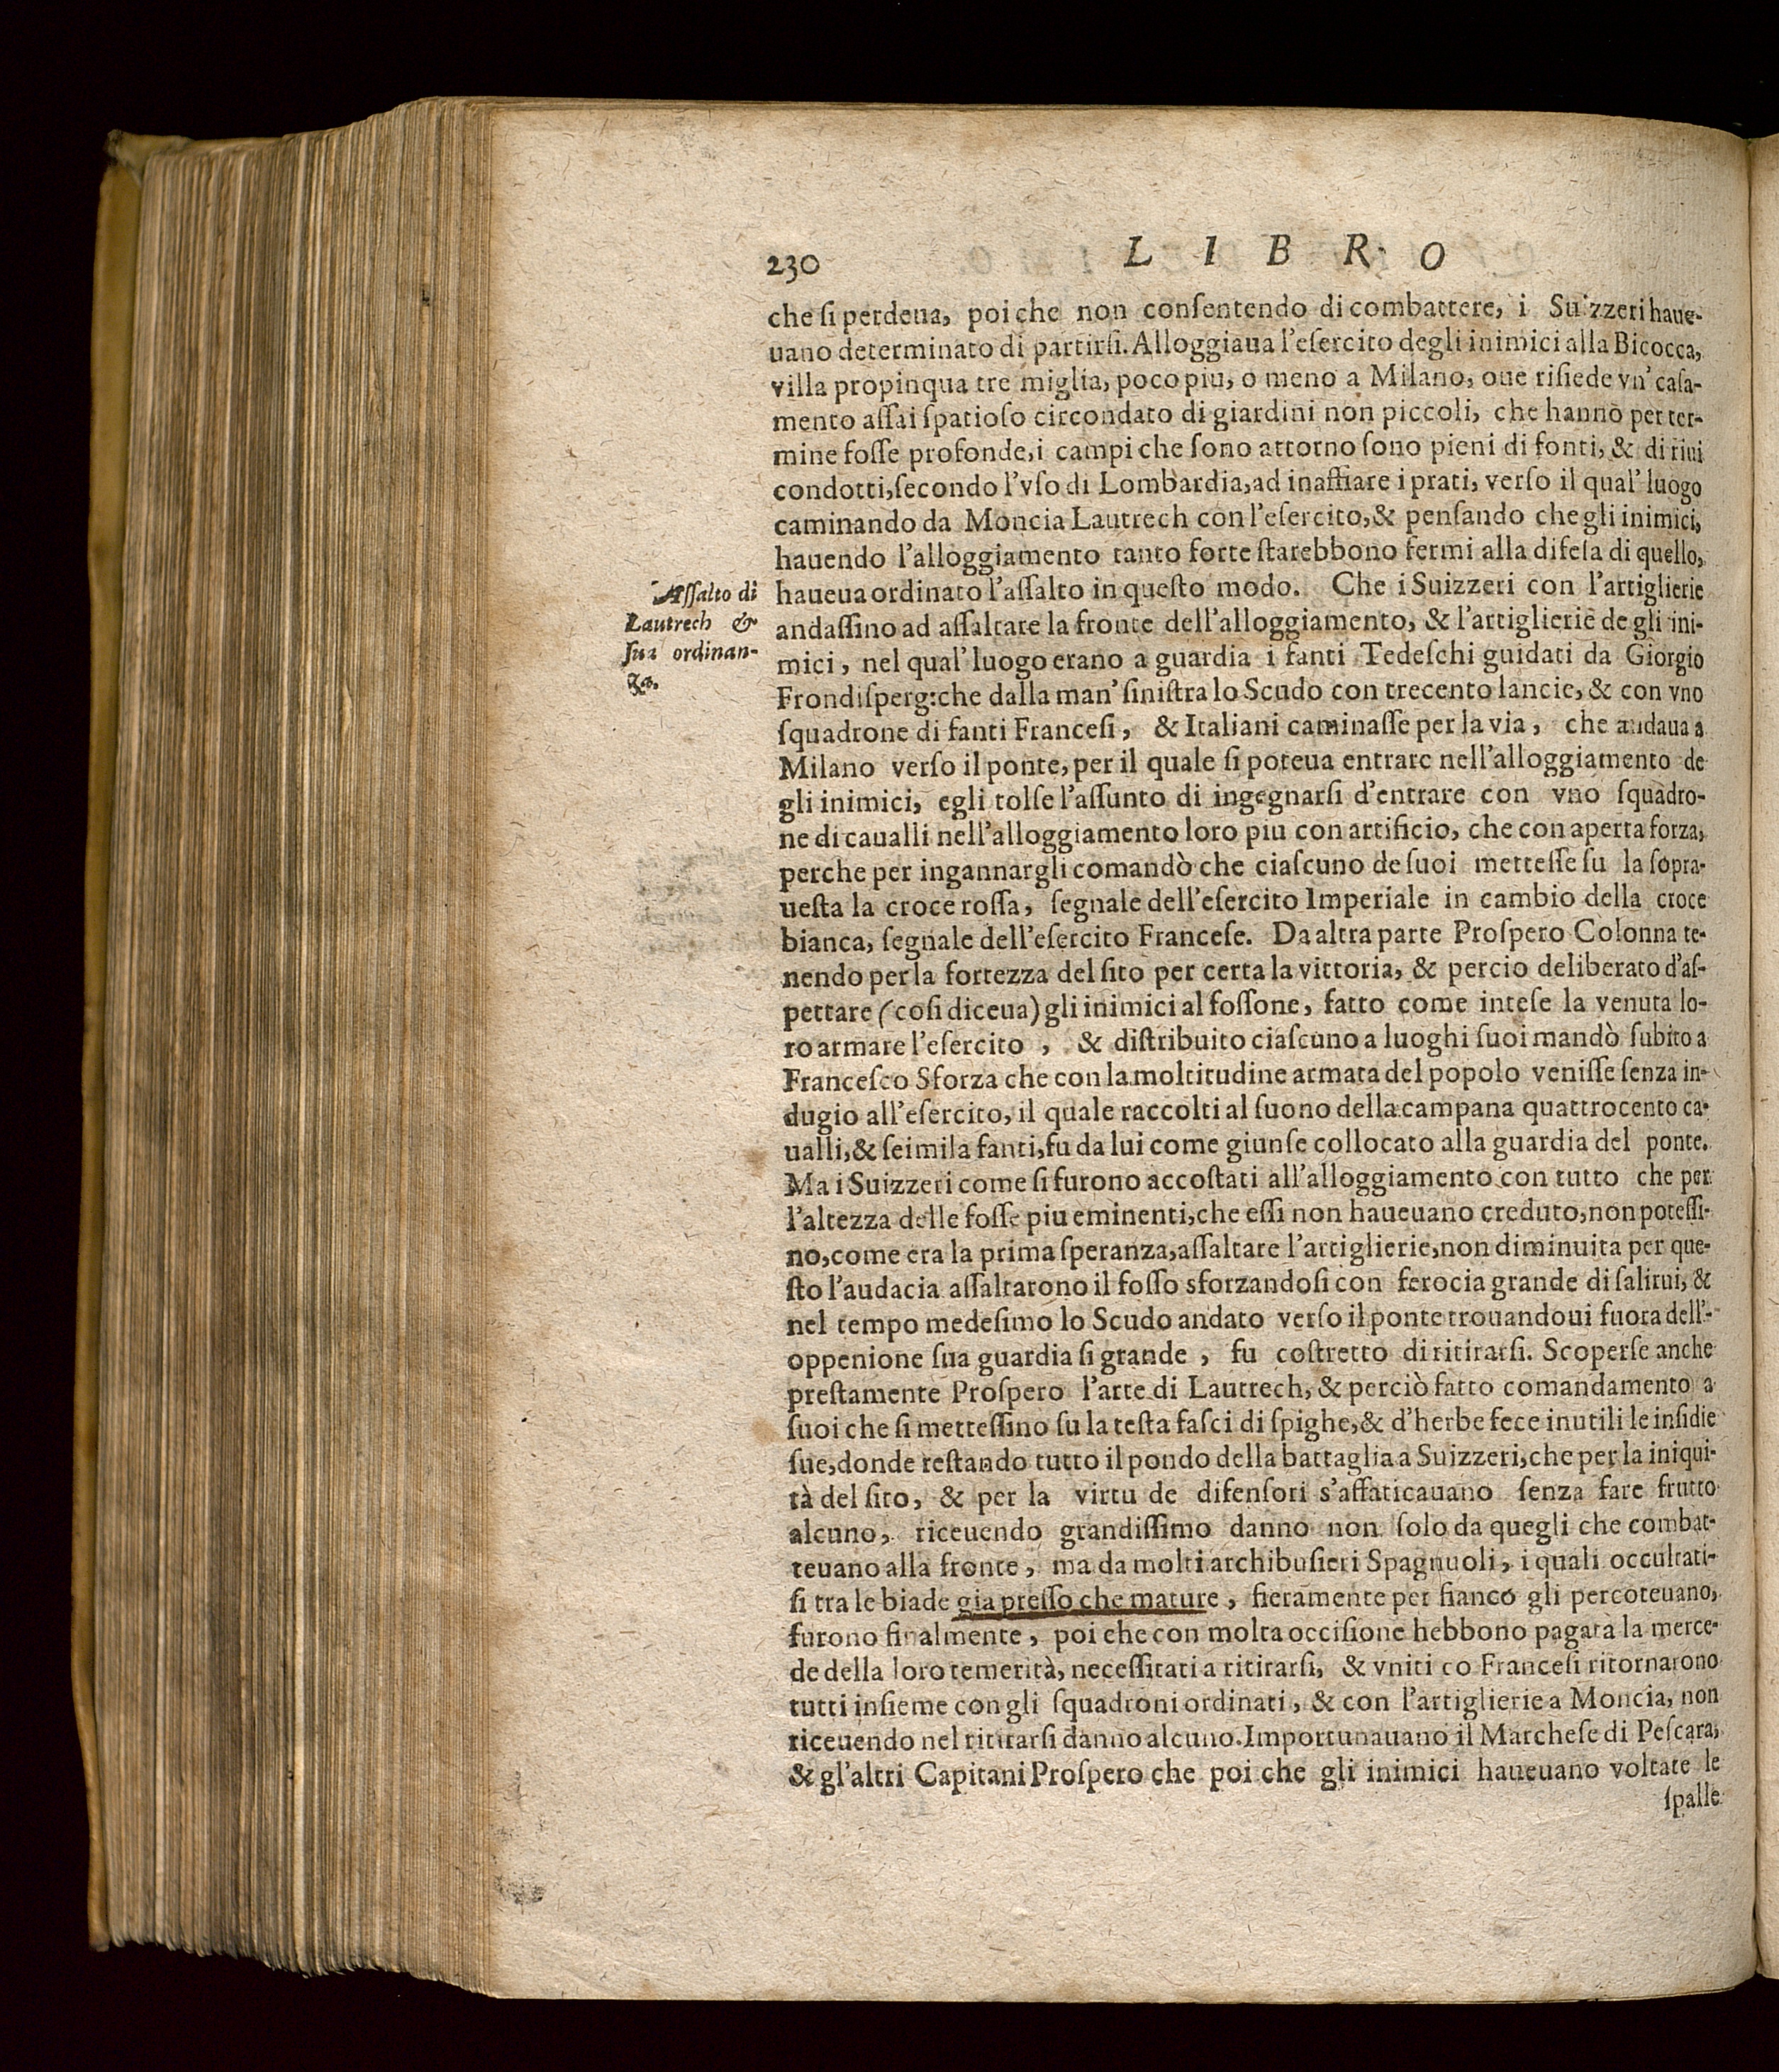 230 LIBRO
che ſi perdeua, poi che non conſentendo di combattere, i Suizzeri haue-
uano determinato di partirſi. Alloggiaua l'eſercito degli inimici alla Bicocca,
villa propinqua tre miglia, poco piu, o meno a Milano, oue riſiede vn' caſa-
mento aſſai ſpatioſo circondato di giardini non piccoli, che hanno per ter-
mine foſſe profonde, i campi che ſono attorno ſono pieni di fonti, & di riui
condotti, ſecondo l'vſo di Lombardia, ad inaffiare i prati, verſo il qual' luogo
caminando da Moncia Lautrech con l'eſercito, & penſando che gli inimici,
hauendo l'alloggiamento tanto forte ſtarebbono fermi alla difeſa di quello,
haueua ordinato l'aſſalto in queſto modo. Che i Suizzeri con l'artiglierie
andaſſino ad aſſaltare la fronte dell'alloggiamento, & l'artiglierie de gli ini-
mici, nel qual' luogo erano a guardia i fanti Tedeſchi guidati da Giorgio
Frondiſperg: che dalla man' ſiniſtra lo Scudo con trecento lancie, & con vno
ſquadrone di fanti Franceſi, & Italiani caminaſſe per la via, che andaua a
Milano verſo il ponte, per il quale ſi poteua entrare nell'alloggiamento de
gli inimici, egli tolſe l'aſſunto di ingegnarſi d'entrare con vno ſquadro-
ne di caualli nell'alloggiamento loro piu con artificio, che con aperta forza,
perche per ingannargli comandò che ciaſcuno de ſuoi metteſſe ſu la ſopra-
ueſta la croce roſſa, ſegnale dell'eſercito Imperiale in cambio della croce
bianca, ſegnale dell'eſercito Franceſe. Da altra parte Proſpero Colonna te-
nendo per la fortezza del ſito per certa la vittoria, & percio deliberato d'aſ-
pettare (coſi diceua) gli inimici al foſſone, fatto come inteſe la venuta lo-
ro armare l'eſercito, & diſtribuito ciaſcuno a luoghi ſuoi mandò ſubito a
Franceſco Sforza che con la moltitudine armata del popolo veniſſe ſenza in-
dugio all'eſercito, il quale raccolti al ſuono della campana quattrocento ca-
ualli, & ſeimila fanti, fu da lui come giunſe collocato alla guardia del ponte.
Ma i Suizzeri come ſi furono accoſtati all'alloggiamento con tutto che per
l'altezza delle foſſe piu eminenti, che eſſi non haueuano creduto, non poteſſi-
no, come era la prima ſperanza, aſſaltare l'artiglierie, non diminuita per que-
ſto l'audacia aſſaltarono il foſſo sforzandoſi con ferocia grande di ſalirui, &
nel tempo medeſimo lo Scudo andato verſo il ponte trouandoui fuora dell'-
oppenione ſua guardia ſi grande, fu coſtretto di ritirarſi. Scoperſe anche
preſtamente Proſpero l'arte di Lautrech, & perciò fatto comandamento a
ſuoi che ſi metteſſino ſu la teſta faſci di ſpighe, & d'herbe fece inutili le inſidie
ſue, donde reſtando tutto il pondo della battaglia a Suizzeri, che per la iniqui-
tà del ſito, & per la virtu de difenſori s'affaticauano ſenza fare frutto
alcuno, riceuendo grandiſſimo danno non ſolo da quegli che combat-
teuano alla fronte, ma da molti archibuſieri Spagnuoli, i quali occultati-
ſi tra le biade gia preſſo che mature, fieramente per fianco gli percoteuano,
furono finalmente, poi che con molta occiſione hebbono pagata la merce-
de della loro temerità, neceſſitati a ritirarſi, & vniti co Franceſi ritornarono
tutti inſieme con gli ſquadroni ordinati, & con l'artiglierie a Moncia, non
riceuendo nel ritirarſi danno alcuno. Importunauano il Marcheſe di Peſcara,
& gl'altri Capitani Proſpero che poi che gli inimici haueuano voltate le
ſpalle
Aſſalto di
Lautrech &
ſua ordinan-
za.